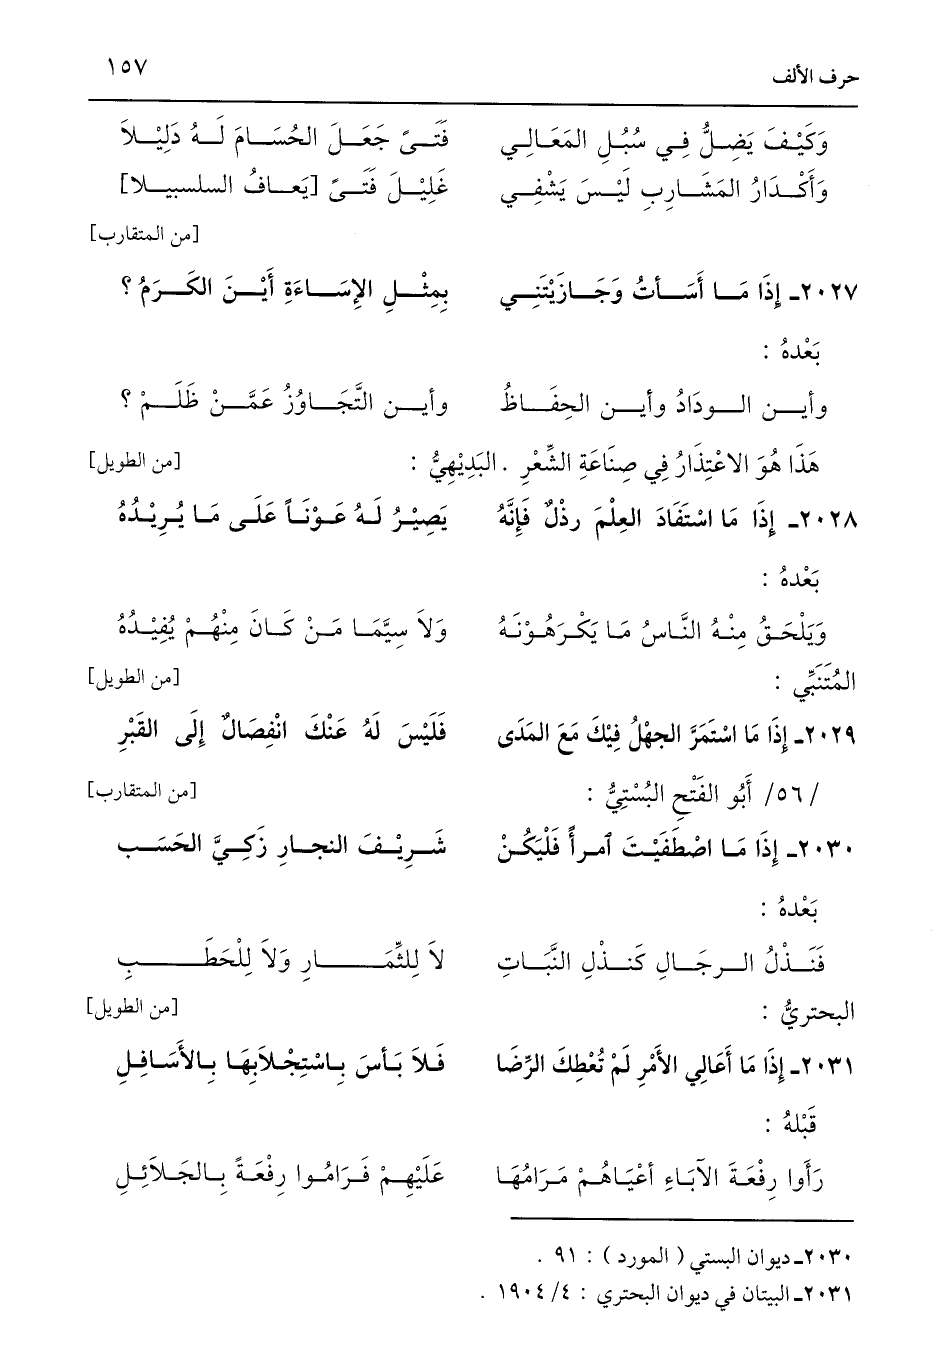 حرف الألف ١٥٧
وَكَيْـفَ يَضِـلُّ فِـي سُبُـلِ المَعَـالِـي فَتَـىً جَعَـلَ الحُسَـامَ لَـهُ دَلِيْـلاَ
وَأَكْـدَارُ المَشَـارِبِ لَيْـسَ يَشْفِـي غَلِيْـلَ فَتَـىً [يَعَـافُ السلسبيـلا]
[من المتقارب]
٢٠٢٧ـ إِذَا مَـا أَسَـأتُ وَجَـازَيْتَنِـي بِمِثْـلِ الإِسَـاءَةِ أَيْـنَ الكَـرَمُ ؟
بَعْدهُ :
وأيـن الـودَادُ وأيـن الحِفَـاظُ وأيـن التَّجَـاوُزُ عَمَّـنْ ظَلَـمْ ؟
هَذَا هُوَ الاعْتِذَارُ فِي صِنَاعَةِ الشِّعْرِ . البَدِيْهِيُّ : [من الطويل]
٢٠٢٨ـ إِذَا مَا اسْتَفَادَ العِلْمَ رذْلٌ فَإِنَّهُ يَصِيْـرُ لَـهُ عَـوْنَـاً عَلَـى مَـا يُـرِيْـدُهُ
بَعْدهُ :
وَيَلْحَـقُ مِنْـهُ النَّـاسُ مَـا يَكْـرَهُـوْنَـهُ وَلاَ سِيَّمَـا مَـنْ كَـانَ مِنْهُـمْ يُفِيْـدُهُ
المُتَنَبِّي : [من الطويل]
٢٠٢٩ـ إِذَا مَا اسْتَمَرَّ الجهْلُ فِيْكَ مَعَ المَدَى فَلَيْسَ لَهُ عَنْكَ انْفِصَالٌ إِلَى القَبْرِ
/٥٦/ أَبُو الفَتْحِ البُسْتِيُّ : [من المتقارب]
٢٠٣٠ـ إِذَا مَـا اصْطَفَيْـتَ ٱمـرأً فَلْيَكُـنْ شَـرِيْـفَ النجـارِ زَكِـيَّ الحَسَـب
بَعْدهُ :
فَنَـذْلُ الـرجَـالِ كَنَـذْلِ النَّبَـاتِ لاَ لِلثِّمَـارِ وَلاَ لِلْحَطَـبِ
البحتريُّ : [من الطويل]
٢٠٣١ـ إِذَا مَا أَعَالِي الأَمْرِ لَمْ تُعْطِكَ الرِّضَا فَـلاَ بَـأسَ بِـاسْتِجْلاَبِهَـا بِـالأَسَـافِـلِ
قَبْلهُ :
رَأَوا رِفْعَـةَ الآبَـاءِ أعْيَـاهُـمْ مَـرَامُهَـا عَلَيْهِـمْ فَـرَامُـوا رِفْعَـةً بِـالحَـلاَئِـلِ
٢٠٣٠ـ ديوان البستي ( المورد ) : ٩١ .
٢٠٣١ـ البيتان في ديوان البحتري : ٤/ ١٩٠٤ .